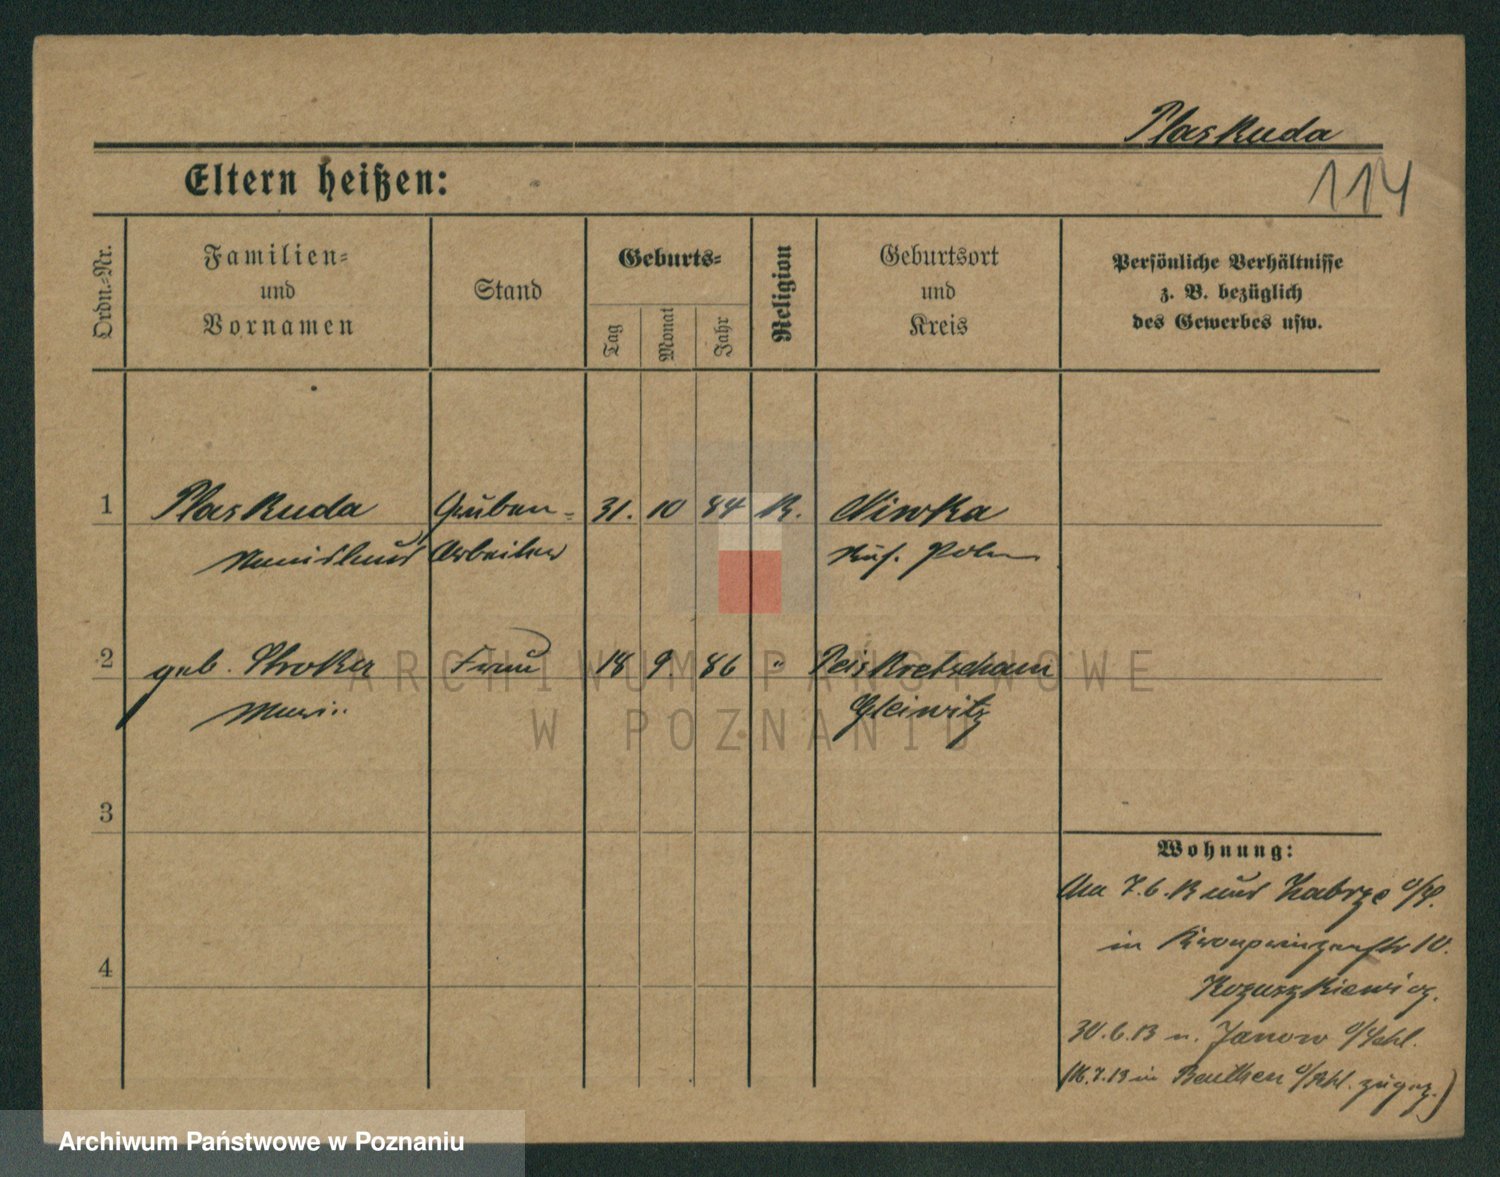 Plaskuda
114
Eltern heißen:
Ordn.-Nr.
Familien-
und
Vornamen
Stand
Geburts-
Tag
Monat
Jahr
Religion
Geburtsort
und
Kreis
Persönliche Verhältnisse
z. B. bezüglich
des Gewerbes usw.
1 Plaskuda Gruben- 31. 10 84 K. Niwka
Arbeiter Rus. Polen
2 geb. Stroker Frau 18 9. 86 " Peiskretscham
Marie Gleiwitz
3
4
Wohnung:
7.6.13 aus Zabrze o/S.
in Kronprinzenstr 10.
30.6.13 n. Janow o/Schl.
(16.7.13 in Beuthen o/Schl. zugez.)
ARCHIWUM PAŃSTWOWE
W POZNANIU
Archiwum Państwowe w Poznaniu